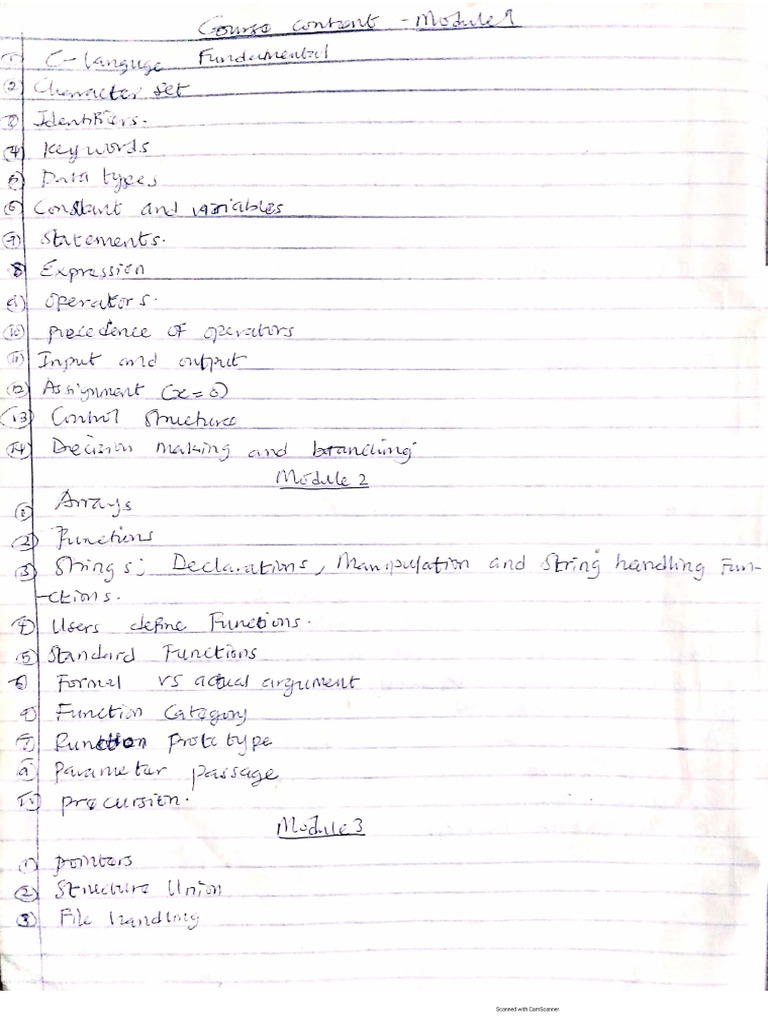 Course content - Module 1
① C-languge Fundamental
② Character set
③ Identifiers.
④ Keywords
⑤ Data types
⑥ Constant and variables
⑦ Statements.
⑧ Expression
⑨ Operators.
⑩ precedence of operators
⑪ Input and output
⑫ Assignment (x=5)
⑬ Control structures
⑭ Decision making and branching
Module 2
① Arrays
② Functions
③ Strings; Declarations, Manipulation and String handling Fun-
-ctions.
④ Users define Functions.
⑤ Standard Functions
⑥ Formal vs actual argument
Function Category
Function prototype
⑨ Parameter passage
precursion.
Module 3
① pointers
② Structure Union
③ File handling
Scanned with CamScanner